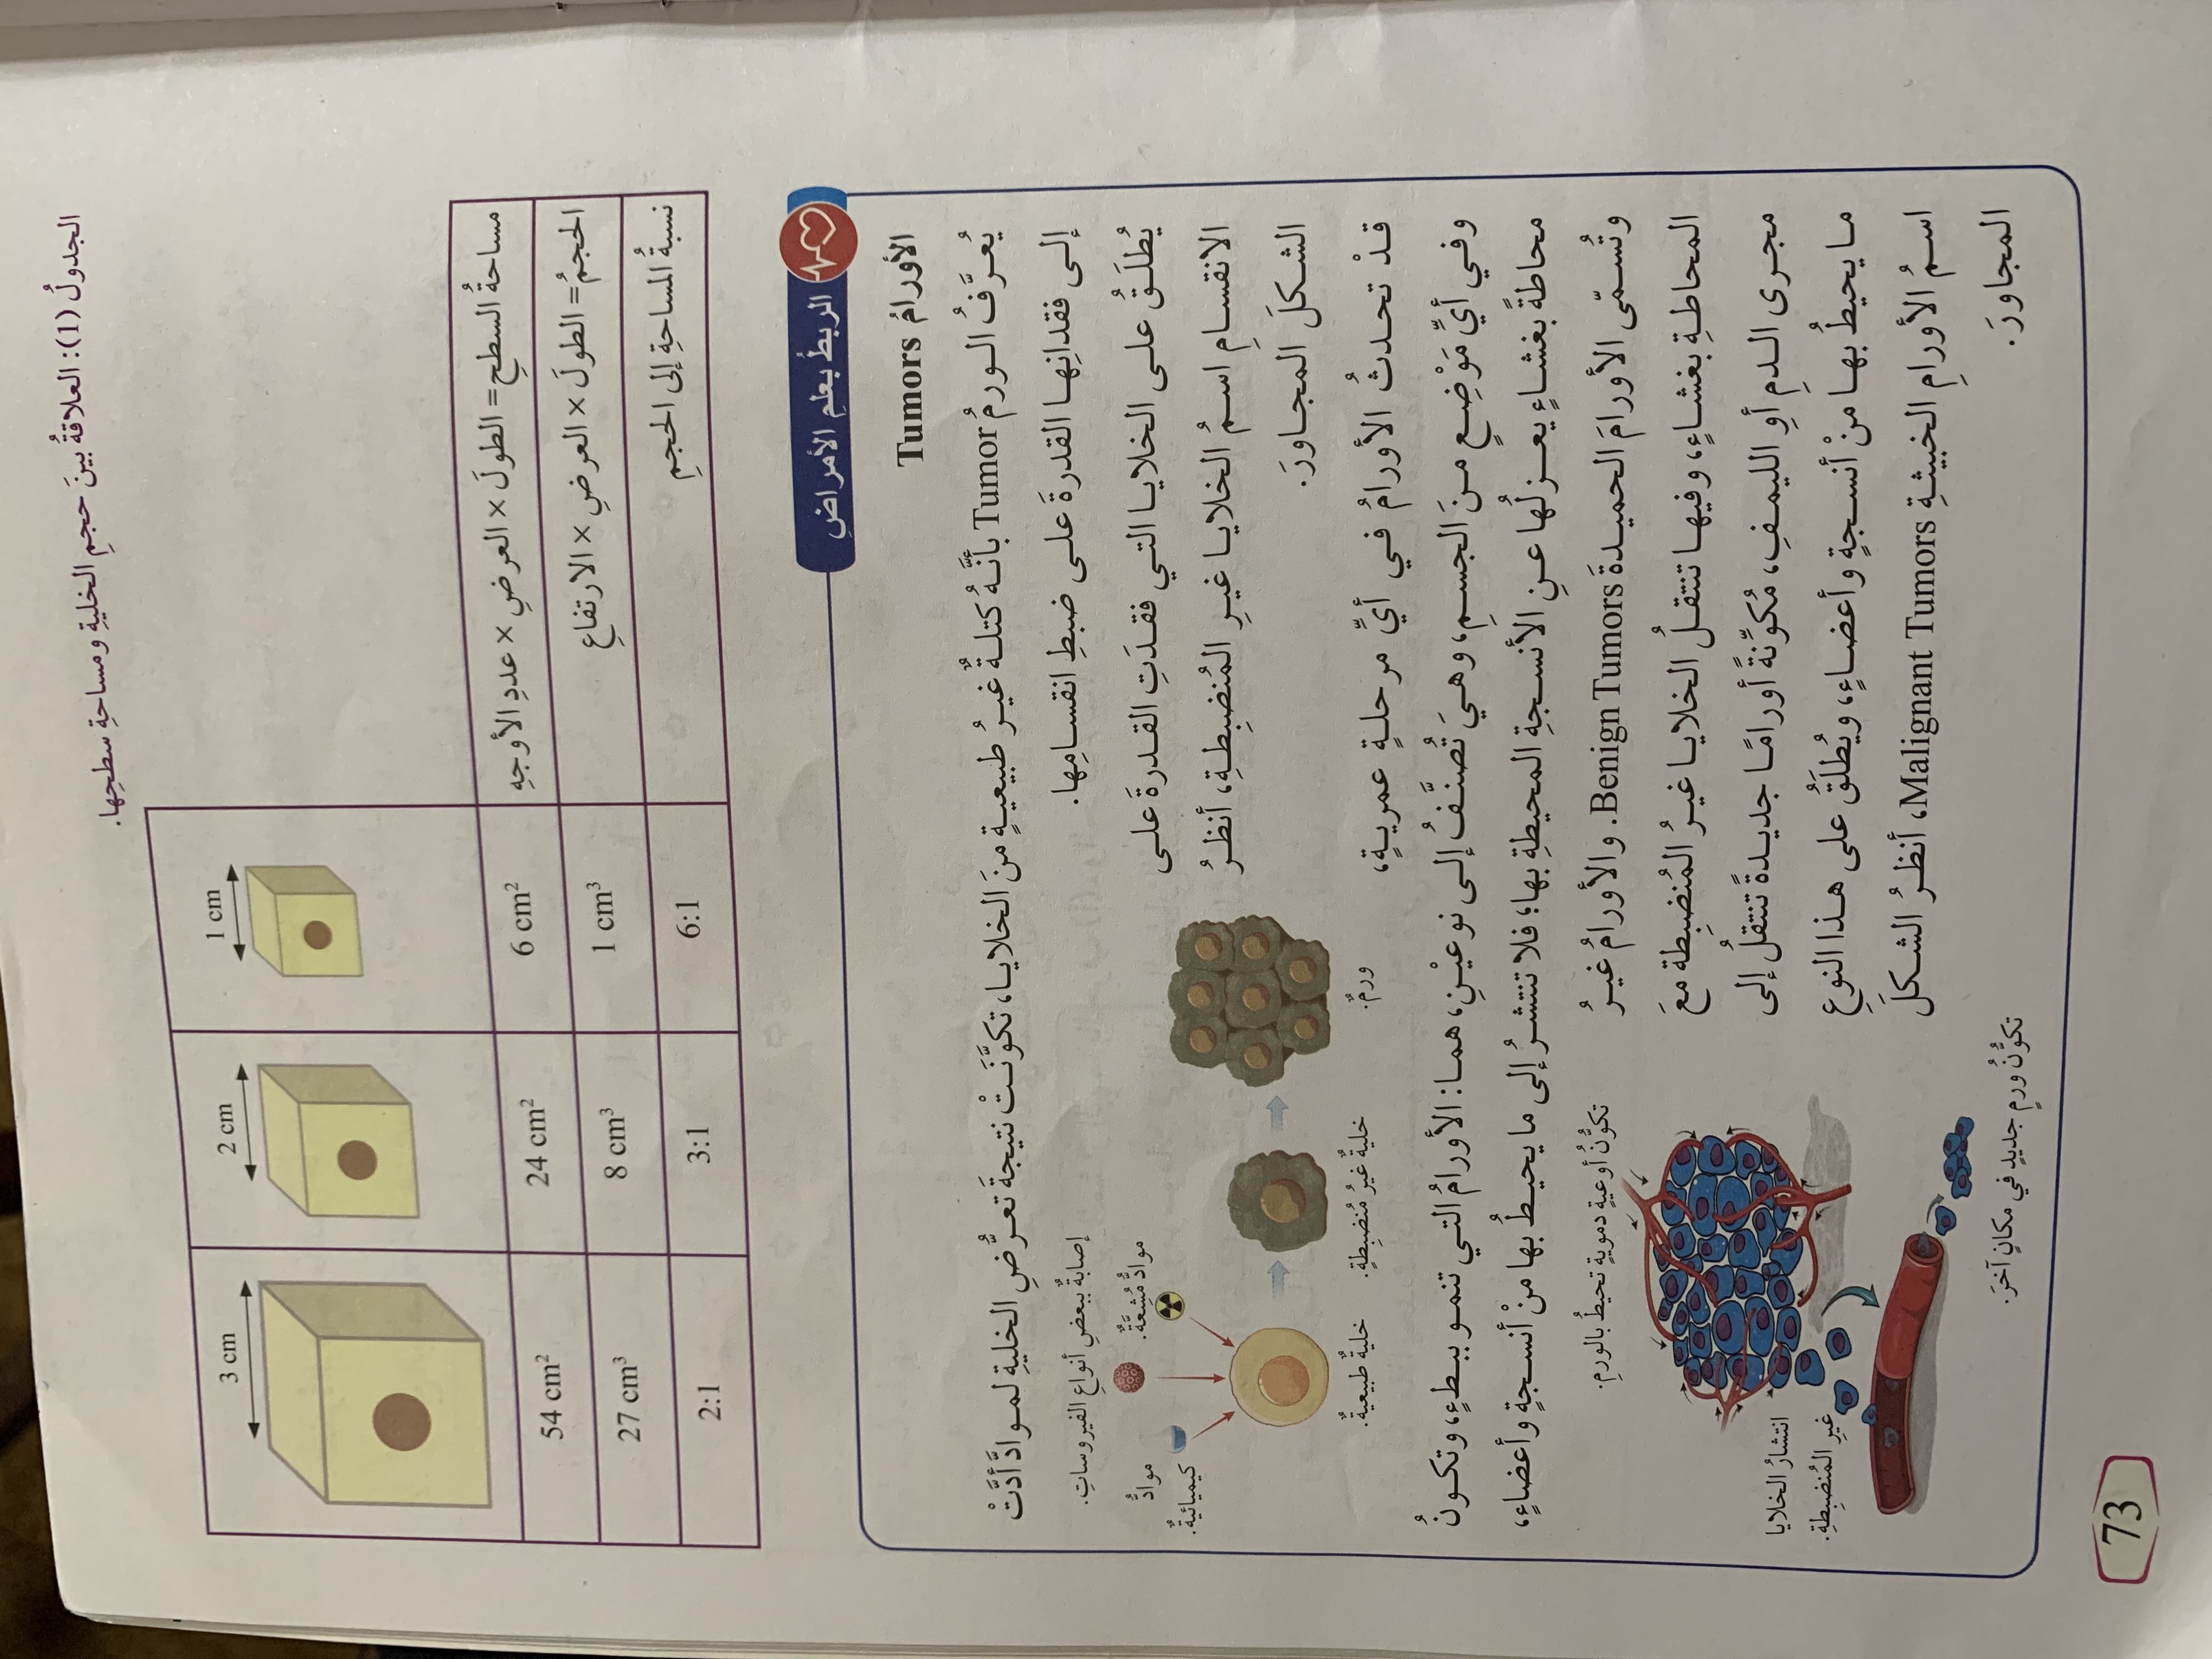 الجدولُ (1): العلاقةُ بينَ حجمِ الخليةِ ومساحةِ سطحِها.
1 cm
2 cm
3 cm
مساحةُ السطحِ = الطولَ × العرضِ × عددِ الأوجهِ
6 cm²
24 cm²
54 cm²
الحجمُ = الطولَ × العرضِ × الارتفاعِ
1 cm³
8 cm³
27 cm³
نسبةُ المساحةِ إلى الحجمِ
6:1
3:1
2:1
الربطُ بعلمِ الأمراضِ
الأورامُ Tumors
يُعرَّفُ الورمُ Tumor بأنَّهُ كتلةٌ غيرُ طبيعيةٍ منَ الخلايا، تكوَّنَتْ نتيجةَ تعرُّضِ الخليةِ لموادَّ أدَّتْ
إلى فقدانِها القدرةَ على ضبطِ انقسامِها.
يُطلَقُ على الخلايا التي فقدَتِ القدرةَ على
الانقسامِ اسمُ الخلايا غيرِ المُنضبِطةِ، أنظرُ
الشكلَ المجاورَ.
إصابةٌ ببعضِ أنواعِ الفيروساتِ.
موادُّ مُشِعَّةٌ.
موادُّ
كيميائيةٌ.
ورمٌ.
خليةٌ غيرُ مُنضبِطةٍ.
خليةٌ طبيعيةٌ.
قدْ تحدثُ الأورامُ في أيِّ مرحلةٍ عمريةٍ،
وفي أيِّ مَوْضِعٍ منَ الجسمِ، وهيَ تُصنَّفُ إلى نوعيْنِ، هما: الأورامُ التي تنمو ببطءٍ، وتكونُ
محاطةً بغشاءٍ يعزلُها عنِ الأنسجةِ المحيطةِ بها؛ فلا تنتشرُ إلى ما يحيطُ بها منْ أنسجةٍ وأعضاءٍ،
وتُسمّى الأورامَ الحميدةَ Benign Tumors. والأورامُ غيرُ
المحاطةِ بغشاءٍ، وفيها تنتقلُ الخلايا غيرُ المُنضبِطةِ معَ
مجرى الدمِ أوِ الليمفِ، مُكوِّنةً أورامًا جديدةً تنتقلُ إلى
ما يحيطُ بها منْ أنسجةٍ وأعضاءٍ، ويُطلَقُ على هذا النوعِ
اسمُ الأورامِ الخبيثةِ Malignant Tumors، أنظرُ الشكلَ
المجاورَ.
تكوُّنُ أوعيةٍ دمويةٍ تحيطُ بالورمِ.
انتشارُ الخلايا
غيرِ المُنضبِطةِ.
تكوُّنُ ورمٍ جديدٍ في مكانٍ آخرَ.
73